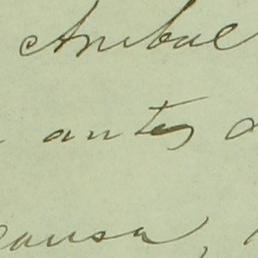 Anibal
antes
causa,